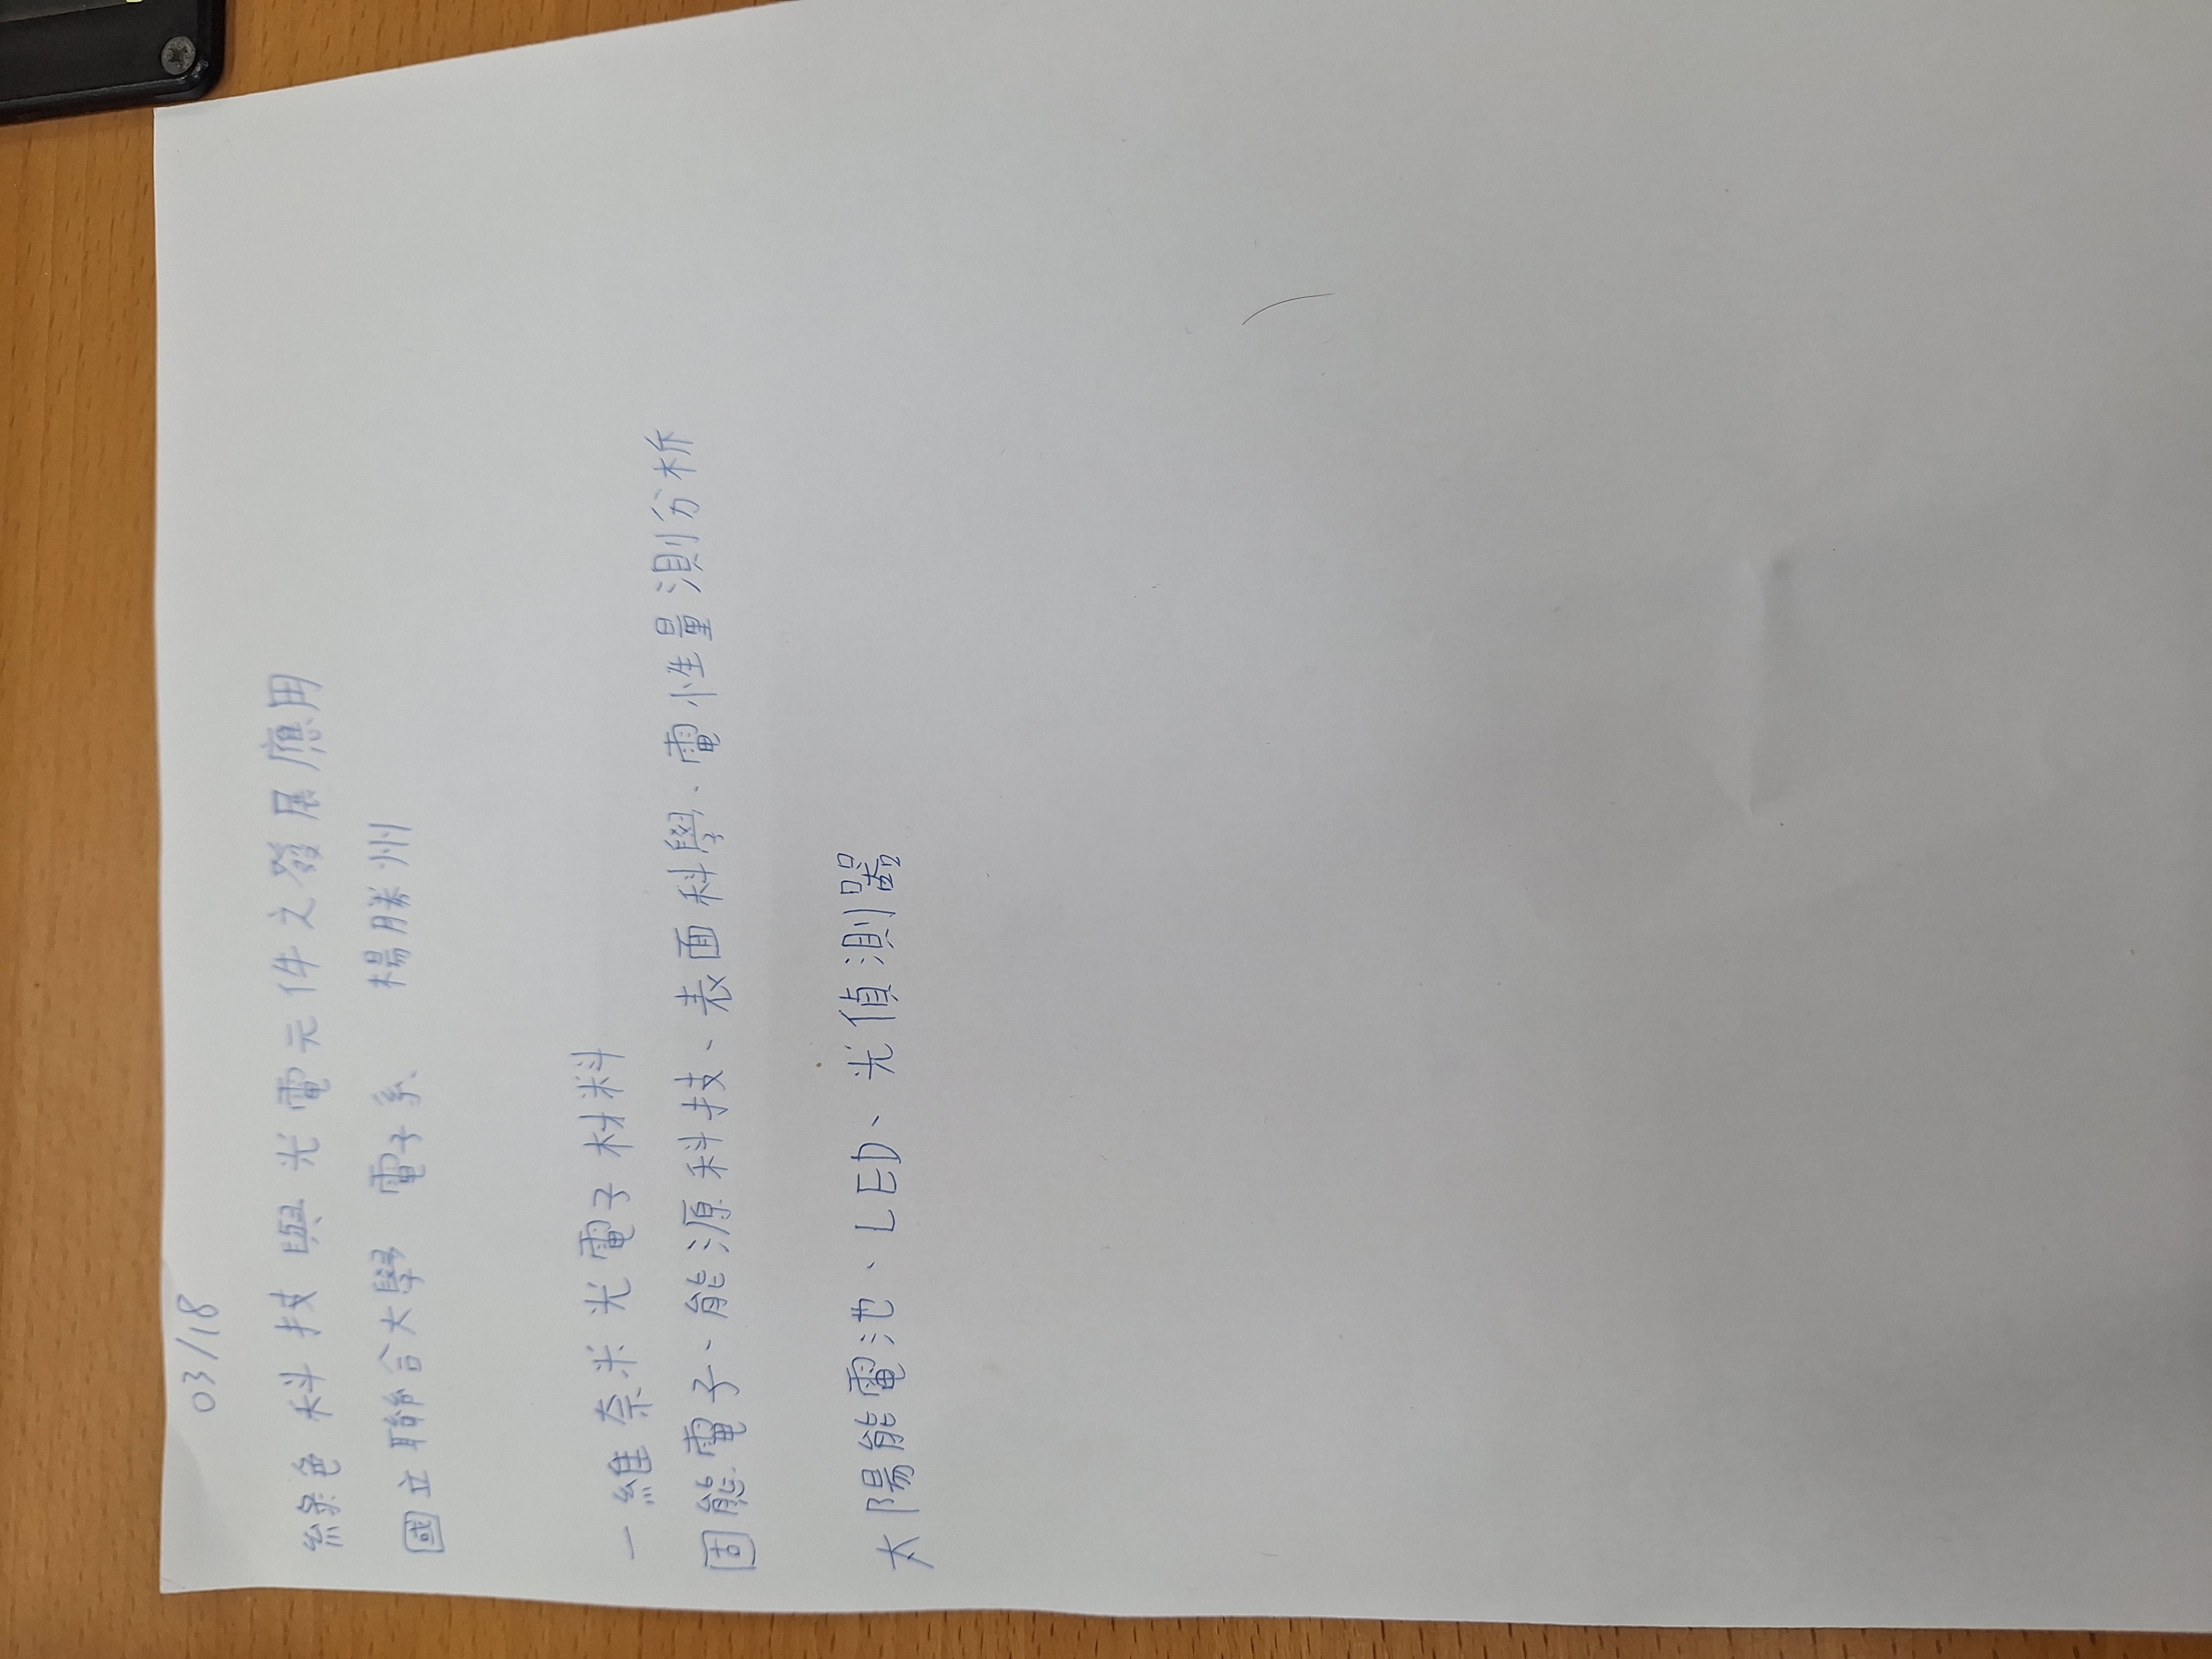 03/18
綠色科技與光電元件之發展應用
國立聯合大學 電子系 楊勝州
一維奈米光電子材料
固態電子、能源科技、表面科學、電性量測分析
太陽能電池、LED、光偵測器